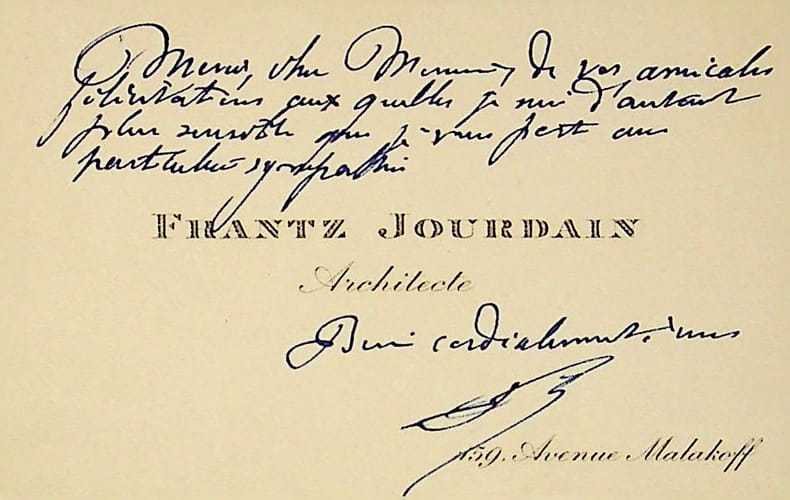 Merci, cher Monsieur, de vos amicales
félicitations aux quelles je suis d'autant
plus sensible que je vous porte une
particulière sympathie
FRANTZ JOURDAIN
Architecte
Bien cordialement, vous
159. Avenue Malakoff